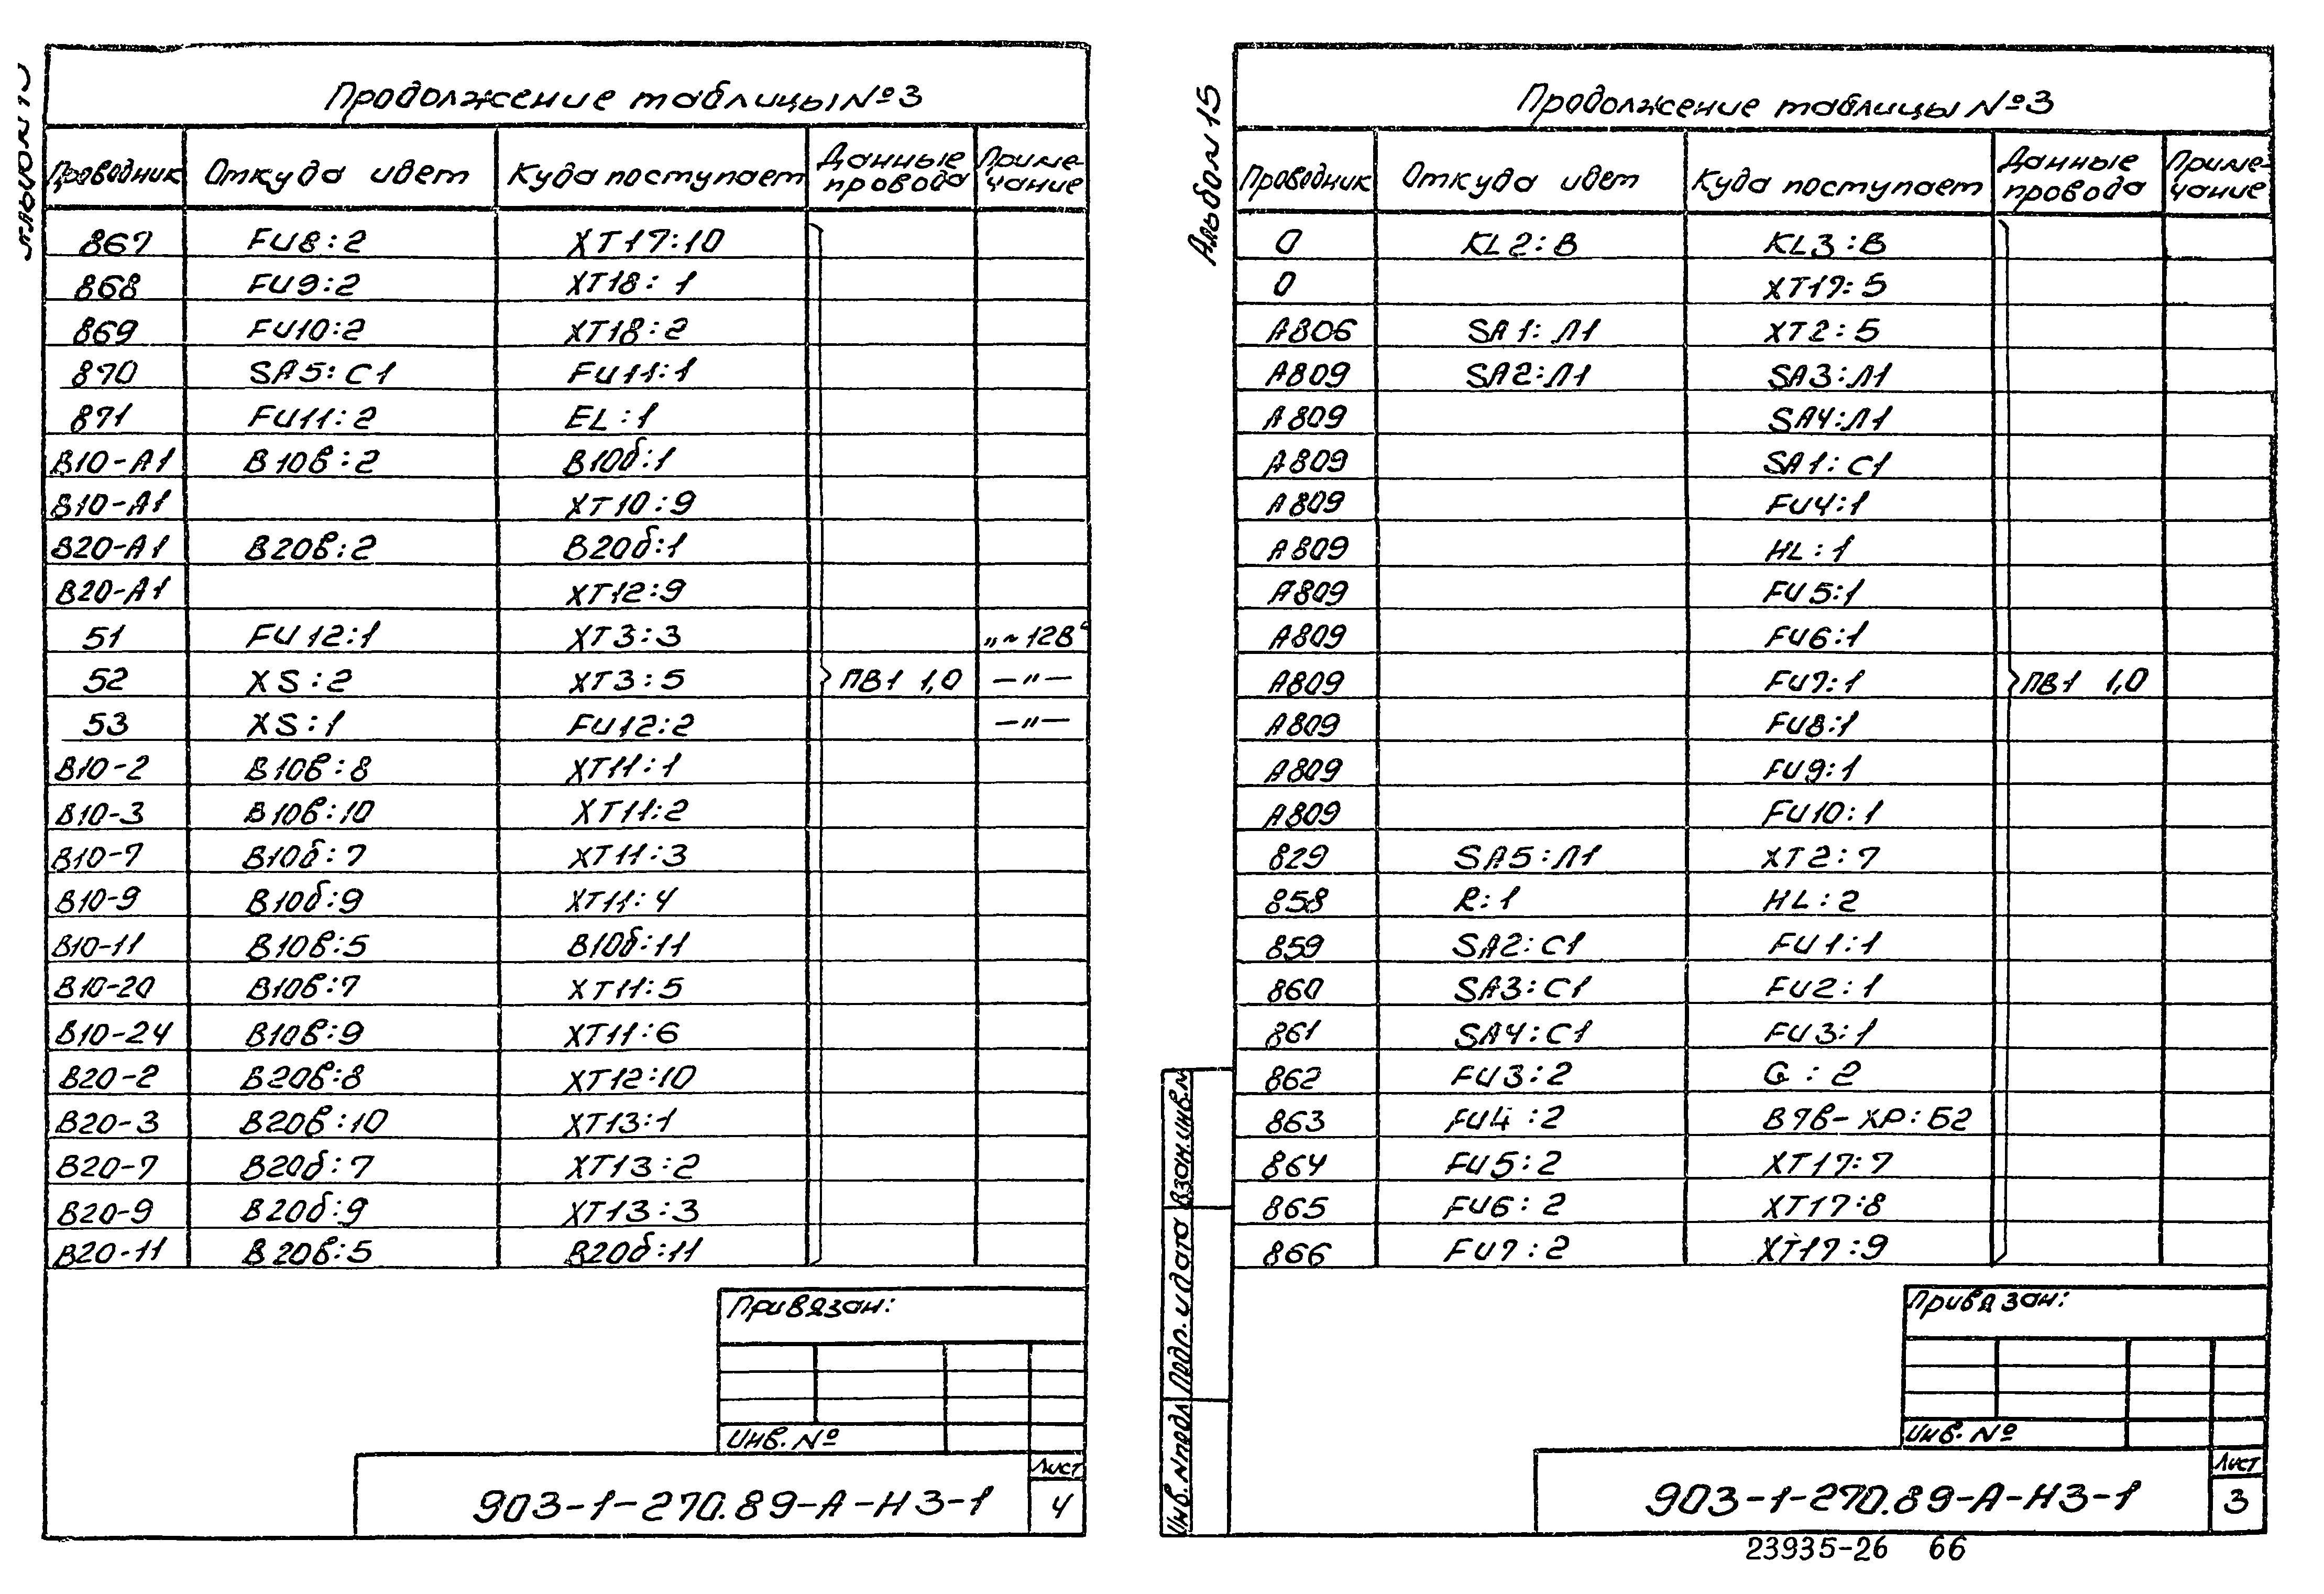 Альбом 15
Продолжение таблицы №3
Проводник Откуда идет Куда поступает Данные провода Приме-чание
867 FU8:2 XT17:10
868 FU9:2 XT18:1
869 FU10:2 XT18:2
870 SA5:C1 FU11:1
871 FU11:2 EL:1
В10-А1 В10в:2 В10б:1
В10-А1 XT10:9
В20-А1 В20в:2 В20б:1
В20-А1 XT12:9
51 FU12:1 XT3:3 „~12В“
52 XS:2 XT3:5 ПВ1 1,0 —"—
53 XS:1 FU12:2 —"—
В10-2 В10в:8 XT11:1
В10-3 В10в:10 XT11:2
В10-7 В10б:7 XT11:3
В10-9 В10б:9 XT11:4
В10-11 В10в:5 В10б:11
В10-20 В10в:7 XT11:5
В10-24 В10в:9 XT11:6
В20-2 В20в:8 XT12:10
В20-3 В20в:10 XT13:1
В20-7 В20б:7 XT13:2
В20-9 В20б:9 XT13:3
В20-11 В20в:5 В20б:11
Привязан:
Инв. №
903-1-270.89-А-НЗ-1
Лист
4
Альбом 15
Продолжение таблицы №3
Проводник Откуда идет Куда поступает Данные провода Приме-чание
0 KL2:В KL3:В
0 XT17:5
А806 SA1:Л1 XT2:5
А809 SA2:Л1 SA3:Л1
А809 SA4:Л1
А809 SA1:C1
А809 FU4:1
А809 HL:1
А809 FU5:1
А809 FU6:1
А809 FU7:1 ПВ1 1,0
А809 FU8:1
А809 FU9:1
А809 FU10:1
829 SA5:Л1 XT2:7
858 R:1 HL:2
859 SA2:C1 FU1:1
860 SA3:C1 FU2:1
861 SA4:C1 FU3:1
862 FU3:2 G:2
863 FU4:2 В7в-ХР:Б2
864 FU5:2 XT17:7
865 FU6:2 XT17:8
866 FU7:2 XT17:9
Взам.инв.№
Подп. и дата
Инв.№подл
Привязан:
Инв. №
903-1-270.89-А-НЗ-1
Лист
3
23935-26 66